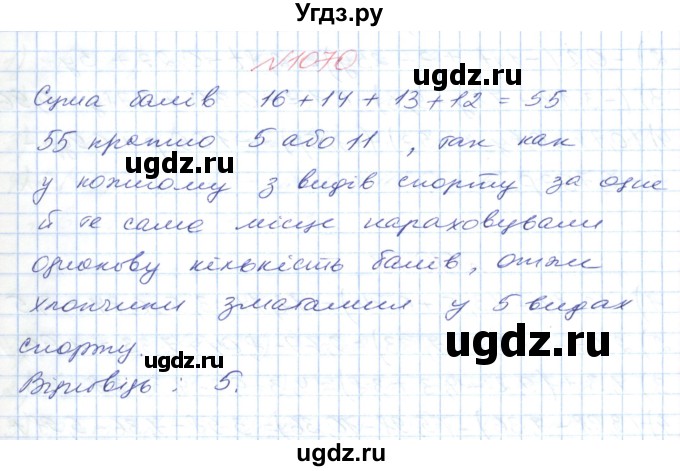 Угдз.ру
№1070
Сума балів 16 + 14 + 13 + 12 = 55
55 кратно 5 або 11, так как
ugdz.ru ugdz.ru
у кожному з видів спорту за одне
й те саме місце нараховували
однакову кількість балів, отже
хлопчики змагалися у 5 видах
ugdz.ru ugdz.ru
спорту.
Відповідь: 5.
ugdz.ru ugdz.ru
ugdz.ru